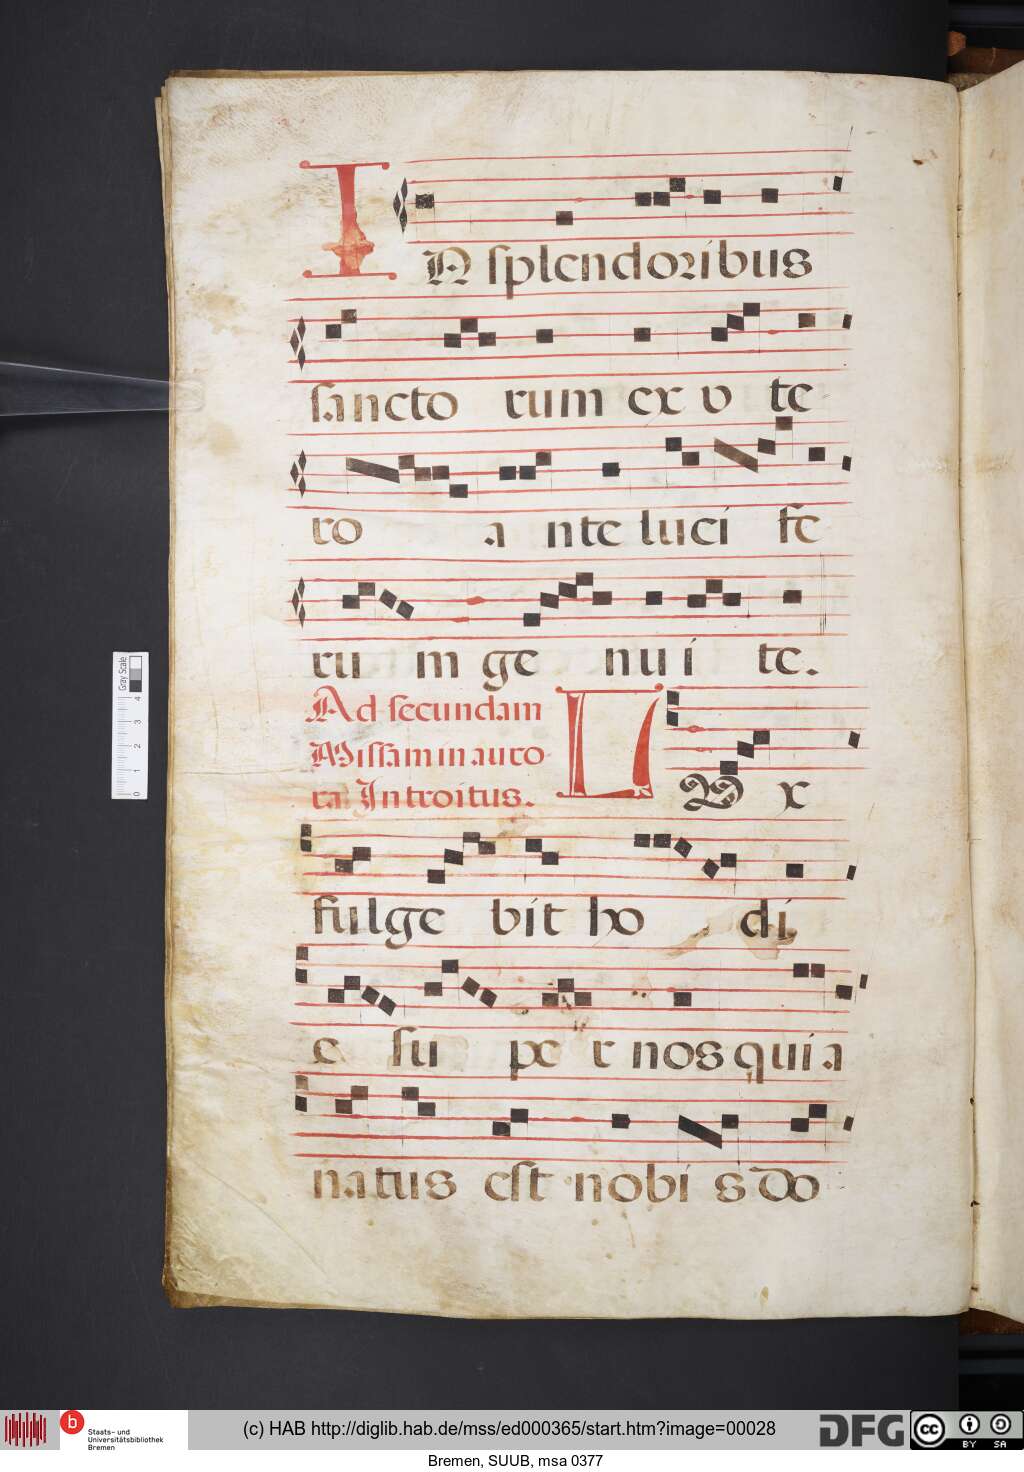 IN splendoribus
sancto rum ex v te
ro a nte luci fe
ru m ge nu i te.
Ad secundam
Missam in auro
ra Introitus.
LV x
fulge bit ho di
e su pe r nos quia
natus est nobi s do
Gray Scale
4 3 2 1 0
b
Staats- und
Universitätsbibliothek
Bremen
(c) HAB http://diglib.hab.de/mss/ed000365/start.htm?image=00028
DFG
cc BY SA
Bremen, SUUB, msa 0377